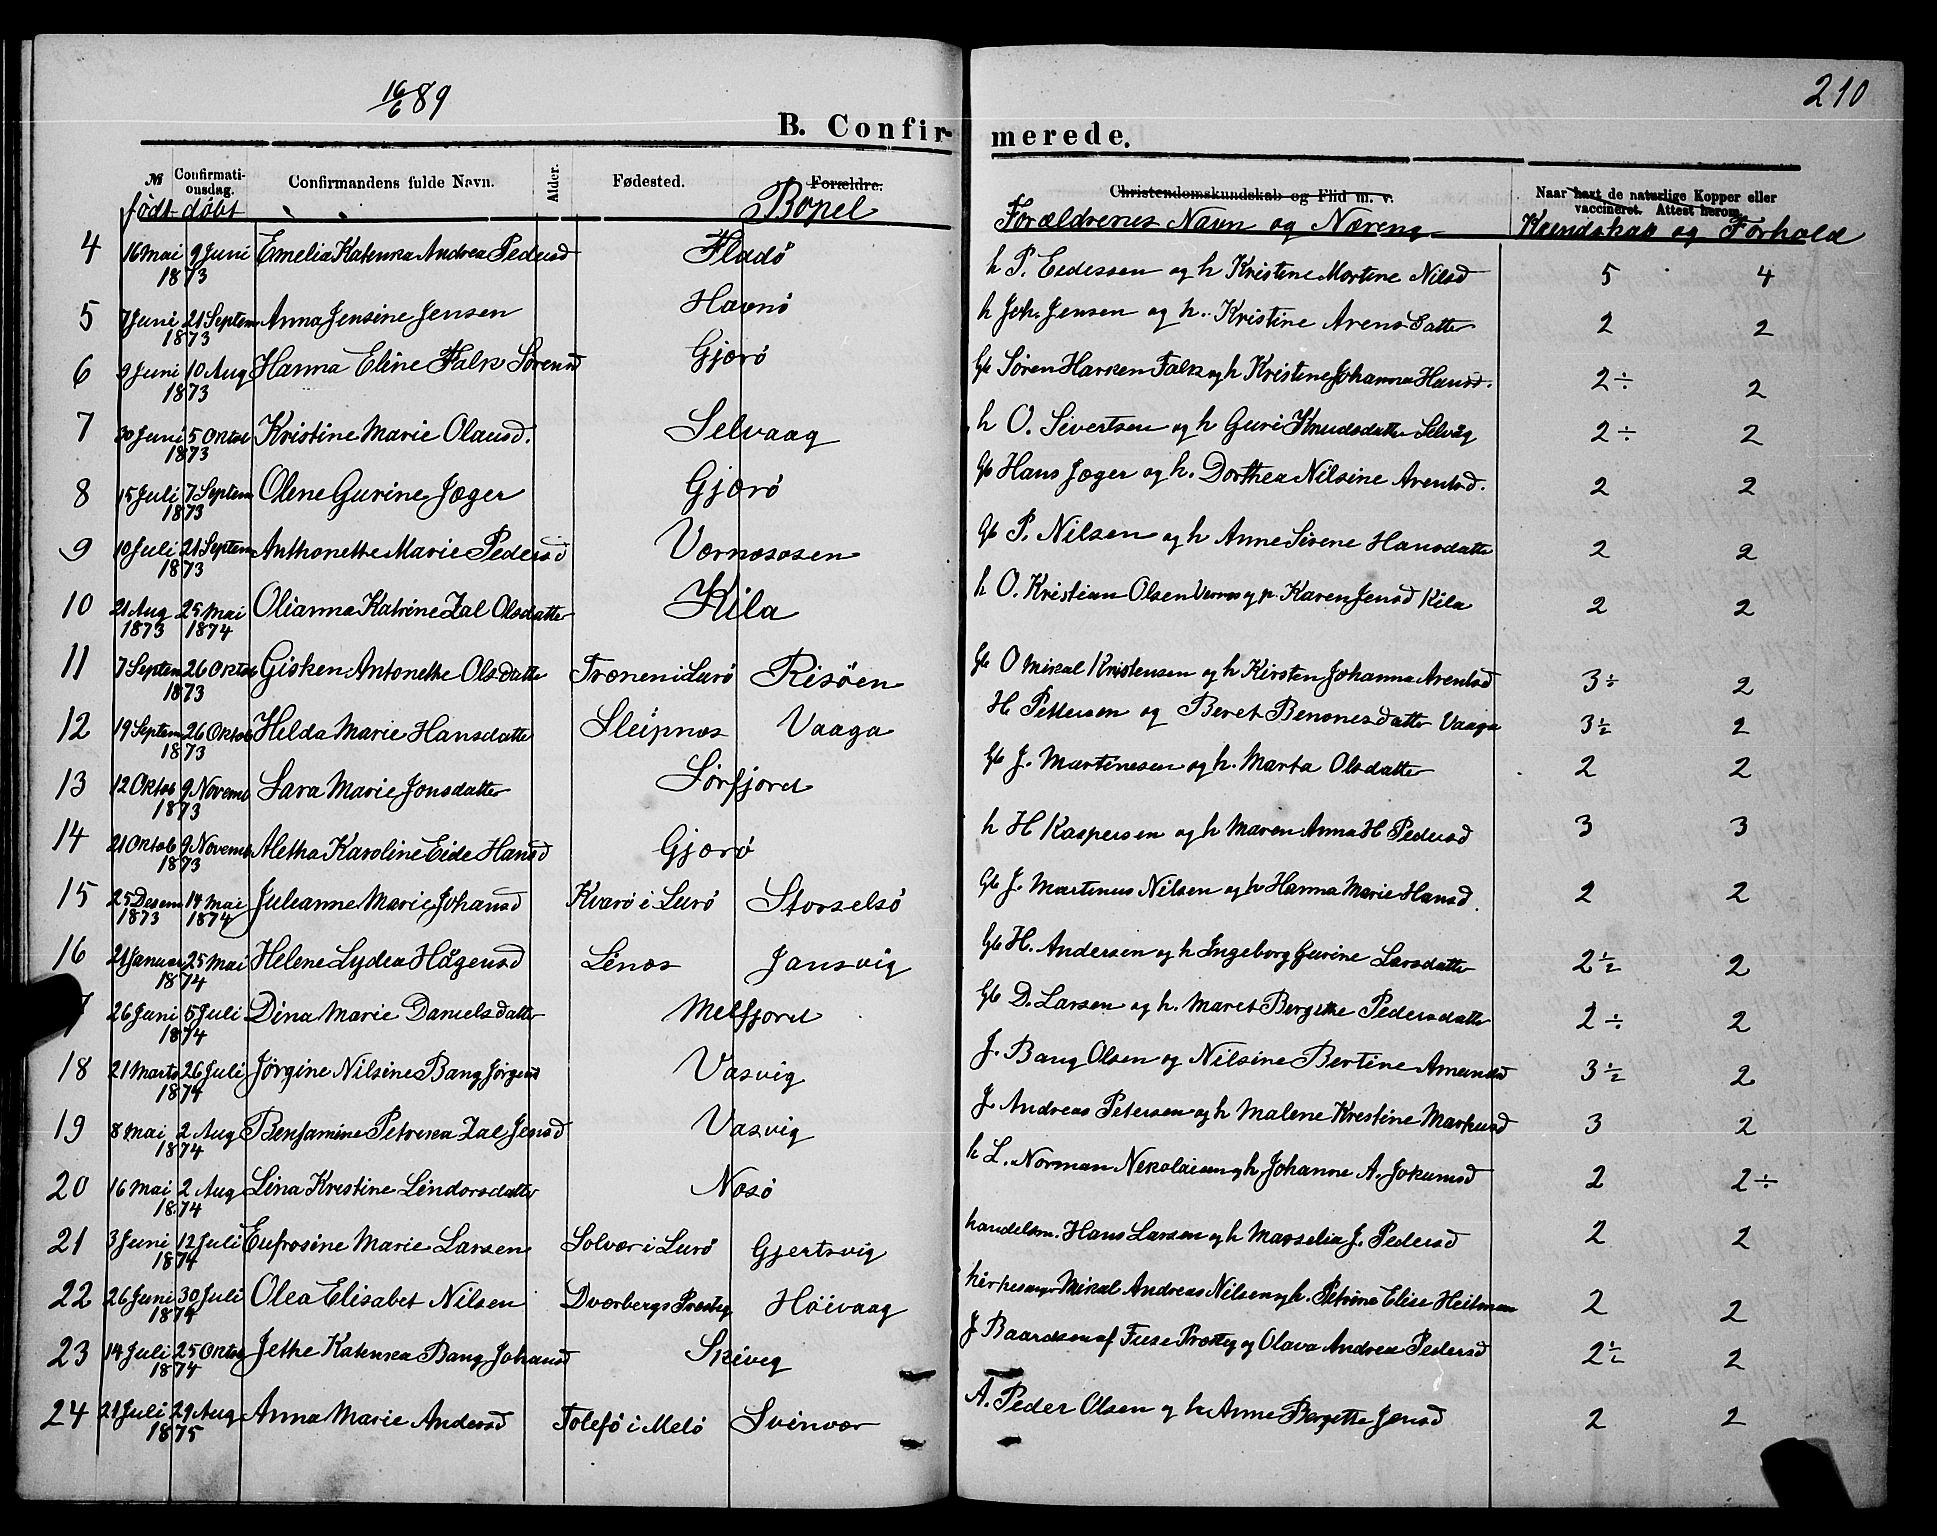 16/6 89
210
B. Confirmerede.
№ Confirmationsdag. Confirmandens fulde Navn. Alder. Fødested. Forældre. Christendomskundskab og Flid m. v. Naar havt de naturlige Kopper eller vaccineret. Attest herom.
født døbt Bopel Forældrenes Navn og Næring Kundskab og Forhold
4 16 Mai 9 Juni 1873 Emelia Katinka Andrea Pedersd Fladö h P. Edessen og h Kristine Martine Nilsd 5 4
5 7 Juni 21 Septem 1873 Anna Jensine Jensen Havnö h Joh. Jensen og h. Kristine Arensdatter 2 2
6 9 Juni 10 Aug 1873 Hanna Eline Falk Sörensd Gjærö Gb Sören Hansen Falk og h Kristine Johanna Hansd. 2÷ 2
7 30 Juni 5 Oktob 1873 Kristine Marie Olausd. Selvaag h O. Sivertsen og h Guri Knudsdatter Selvåg 2÷ 2
8 15 Juli 7 Septem 1873 Olene Gurine Jæger Gjærö Gb Hans Jæger og h. Dorthea Nilsine Arentsd. 2 2
9 10 Juli 21 Septem 1873 Anthonette Marie Pedersd Værnæsosen Gb P. Nilsen og h Anne Sirene Hansdatter 2 2
10 21 Aug 1873 25 Mai 1874 Olianna Katrine Zal Olsdatter Kila h O. Kristian Olsen Værnes og p. Karen Jensd Kila 2 2
11 7 Septem 26 Oktob 1873 Gisken Antonette Olsdatte Trænen i Lurö Risöen Gb O Mikal Kristensen og h Kirsten Johanna Arentsd 3÷ 2
12 19 Septem 26 Oktob 1873 Hilda Marie Hansdatte Sleipnæs Vaaga H Pettersen og Beret Benonesdatter Vaaga 3½ 2
13 12 Oktob 9 Novemb 1873 Sara Marie Jonsdatter Sörfjord Gb J. Martinesen og h. Marta Olsdatter 2 2
14 21 Oktob 9 Novemb 1873 Aletha Karoline Eide Hansd Gjærö h H Kaspersen og h Maren Anna H Pedersd 3 3
15 25 Desem 1873 14 Mai 1874 Julianne Marie Johansd Kvarö i Lurö Storselsö Gb J. Martinus Nilsen og h Hanna Marie Hansd. 2 2
16 21 Januar 25 Mai 1874 Helene Lydea Hågensd Lenæs Jansvig Gb H. Andersen og h Ingeborg Gurine Larsdatte 2½ 2
7 26 Juni 5 Juli 1874 Dina Marie Danielsdatter Melfjord Gb D. Larsen og h. Maret Bergitte Pedersdatter 2÷ 2
18 21 Marts 26 Juli 1874 Jörgine Nilsine Bang Jörgensd Vasvig J. Bang Olsen og Nilsine Bertine Amundsd 3½ 2
19 8 Mai 2 Aug 1874 Benjamine Petrikka Zal Jensd Vasvig J. Andreas Petersen og h Malene Kristine Markusd 3 2
20 16 Mai 2 Aug 1874 Lina Kristine Lindorsdatter Næsö h L. Norman Nikolaisen og h Johanne A. Jokumsd 2 2÷
21 3 Juni 12 Juli 1874 Eufrosine Marie Larsen Solvær i Lurö Gjertsvig handelsm. Hans Larsen og h Marselia J. Pedersd 2 2
22 26 Juni 30 Juli 1874 Olea Elisabet Nilsen Dværbergs Præsteg Höivaag kirkesanger Mikal Andreas Nilsen og h. Petrine Elise Heitman 2 2
23 14 Juli 25 Oktob 1874 Jethe Katinka Bang Johansd Skiveg J Baardsen af Fuse Præsteg og Olava Andrea Pedersd 2½ 2
24 21 Juli 29 Aug 1875 Anna Marie Andersd Tolefö i Melö Svinvær A. Peder Olsen og h Anne Bergette Jensd 2 2